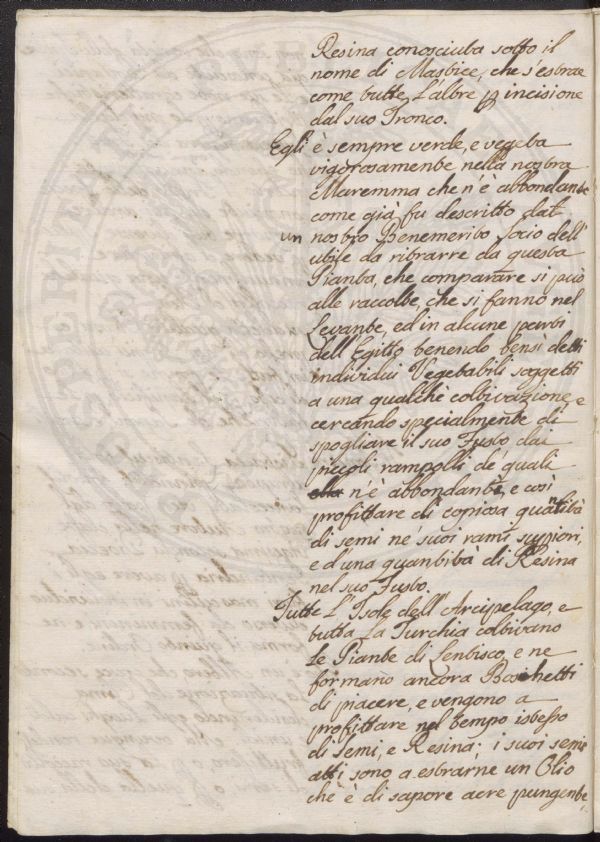 Resina conosciuta sotto il
nome di Mastice, che s'estrae
come tutte L'altre p incisione
dal suo Tronco.
Egli è sempre verde, e vegeta
vigorosamente nella nostra
Maremma che n'è abbondante
come già fu descritto dal
un nostro Benemerito Socio dell'
utile da ritrarre da questa
Pianta, che comparare si può
alle raccolte, che si fanno nel
Levante, ed in alcune parti
dell'Egitto tenendo bensì detti
individui Vegetabili soggetti
a una qualche coltivazione, e
cercando specialmente di
spogliare il suo Fusto dai
piccoli rampolli, de' quali
n'è abbondante, e così
profittare di copiosa quantità
di semi ne suoi rami supiori,
e d'una quantità di Resina
nel suo Fusto.
Tutte L'Isole dell'Arcipelago, e
tutta La Turchia coltivano
Le Piante di Lentisco, e ne
formano ancora Boschetti
di piacere, e vengono a
profittare nel tempo istesso
di Semi, e Resina; i suoi semi
atti sono a estrarne un Olio
che è di sapore acre pungente,